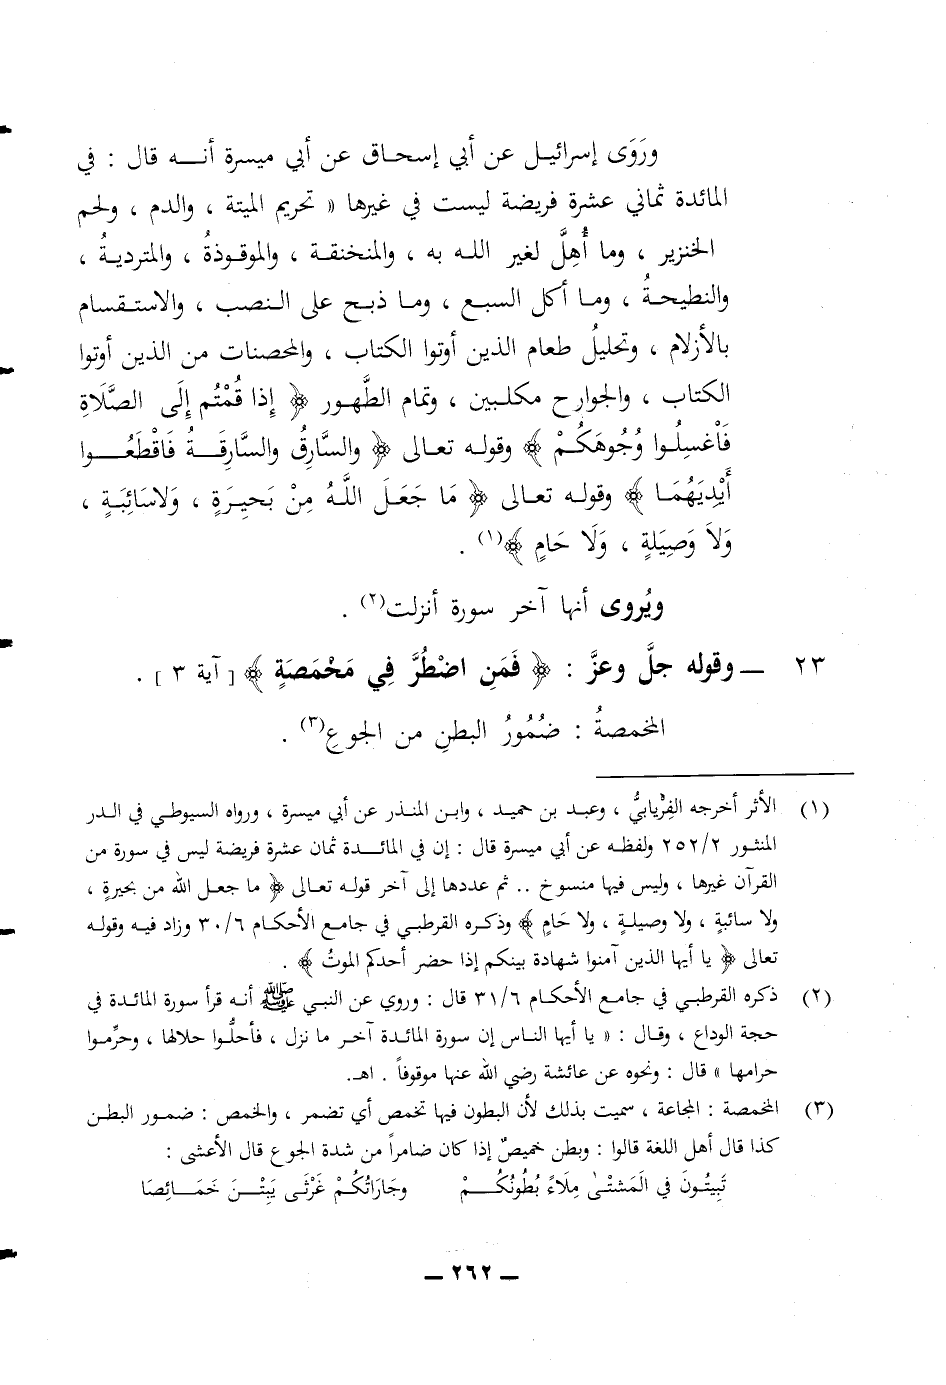 ورَوَى إسرائيل عن أبي إسحاق عن أبي ميسرة أنه قال : في
المائدة ثماني عشرة فريضة ليست في غيرها « تحريم الميتة ، والدم ، ولحم
الخنزير ، وما أُهِلَّ لغير الله به ، والمنخنقة ، والموقوذةُ ، والمترديةُ ،
والنطيحةُ ، وما أكل السبع ، وما ذبح على النصب ، والاستقسام
بالأزلام ، وتحليلُ طعام الذين أوتوا الكتاب ، والمحصنات من الذين أوتوا
الكتاب ، والجوارح مكلبين ، وتمام الطَّهور ﴿ إِذا قُمْتُم إِلَى الصَّلَاةِ
فَاْغسِلُوا وُجُوهَكُمْ ﴾ وقوله تعالى ﴿ والسَّارِقُ والسَّارِقَةُ فَاقْطَعُوا
أَيْدِيَهُمَا ﴾ وقوله تعالى ﴿ مَا جَعَلَ اللَّهُ مِنْ بَحيرَةٍ ، وَلاسَائِبَةٍ ،
وَلاَ وَصِيَلةٍ ، وَلَا حَامٍ ﴾(١) .
ويُروى أنها آخر سورة أنزلت(٢) .
٢٣ ــ وقوله جلَّ وعزَّ : ﴿ فَمَنِ اضْطُرَّ فِي مَخْمَصَةٍ ﴾ [ آية ٣ ] .
المخمصةُ : ضُمُورُ البطنِ من الجوعِ(٣) .
(١) الأثر أخرجه الفِرْيابيُّ ، وعبد بن حميد ، وابن المنذر عن أبي ميسرة ، ورواه السيوطي في الدر
المنثور ٢٥٢/٢ ولفظه عن أبي ميسرة قال : إن في المائدة ثمان عشرة فريضة ليس في سورة من
القرآن غيرها ، وليس فيها منسوخ .. ثم عددها إلى آخر قوله تعالى ﴿ ما جعل الله من بحيرةٍ ،
ولا سائبةٍ ، ولا وصيلةٍ ، ولا حَامٍ ﴾ وذكره القرطبي في جامع الأحكام ٣٠/٦ وزاد فيه وقوله
تعالى ﴿ يا أيها الذين آمنوا شهادة بينكم إذا حضر أحدكم الموتُ ﴾ .
(٢) ذكره القرطبي في جامع الأحكام ٣١/٦ قال : وروي عن النبي ﷺ أنه قرأ سورة المائدة في
حجة الوداع ، وقال : « يا أيها الناس إن سورة المائدة آخر ما نزل ، فأحلُّوا حلالها ، وحرِّموا
حرامها » قال : ونحوه عن عائشة رضي الله عنها موقوفاً . اهـ.
(٣) المخمصة : المجاعة ، سميت بذلك لأن البطون فيها تخمص أي تضمر ، والخمص : ضمور البطن
كذا قال أهل اللغة قالوا : وبطن خميصٌ إذا كان ضامراً من شدة الجوع قال الأعشى :
تَبِيتُونَ في الَمشْتىٰ مِلَاءً بُطُونُكُمْ وجَارَاتُكُمْ غَرْثَى يَبِتْنَ خَمَائِصَا
ــ ٢٦٢ ــ